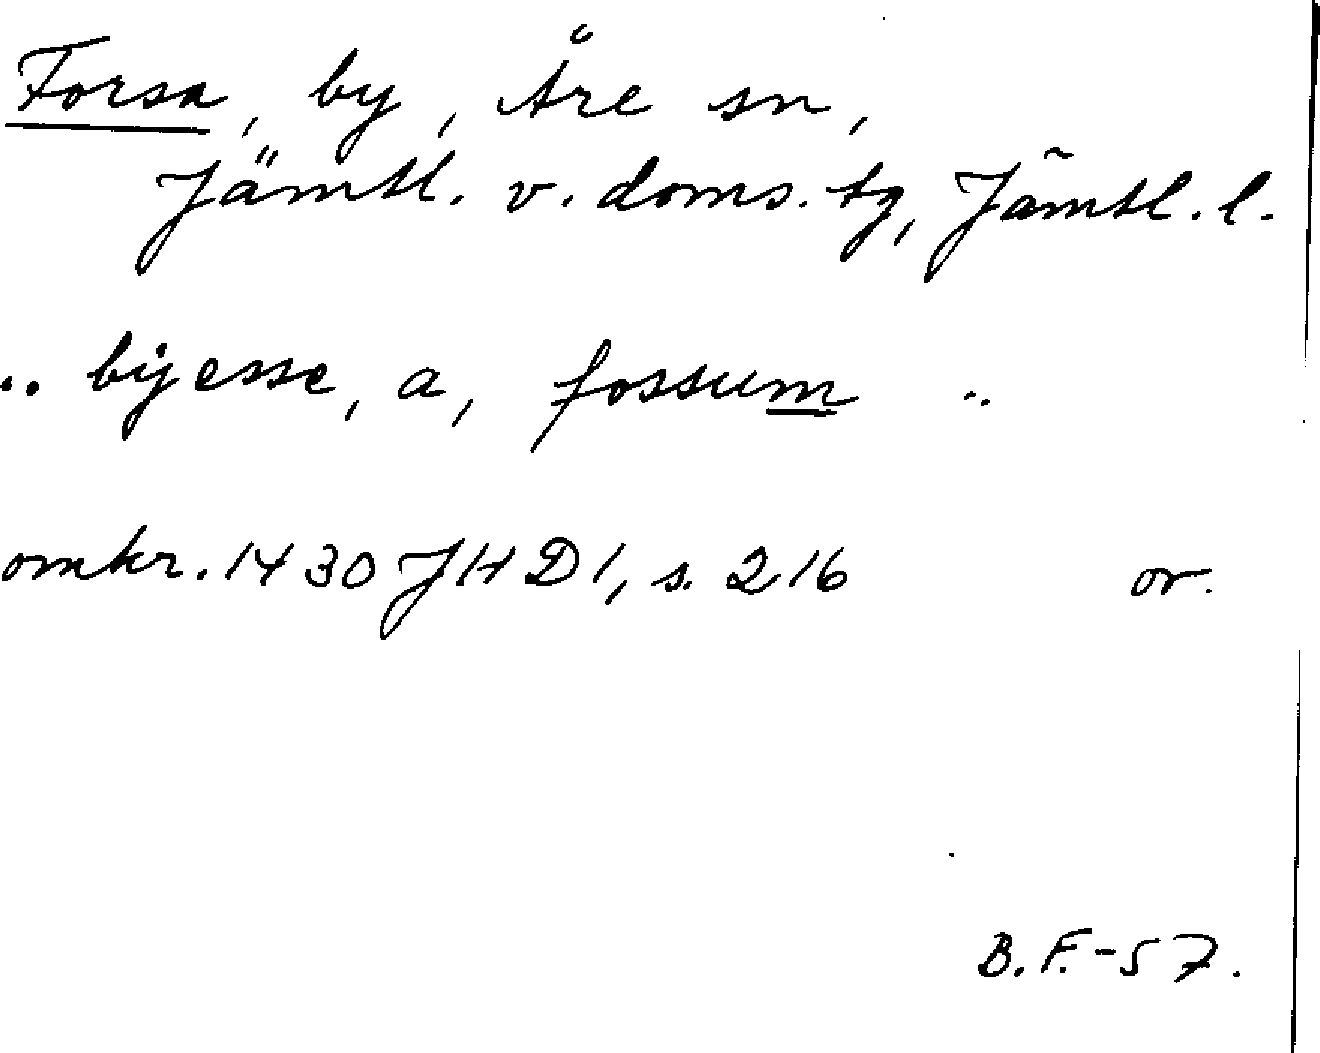 Forsa, by, Åre sn,
Jämtl. v. doms. tg, Jämtl. l.
.. bÿesse, a, fossum ..
omkr. 1430 JHD 1, s. 216 or.
B.F.-57.